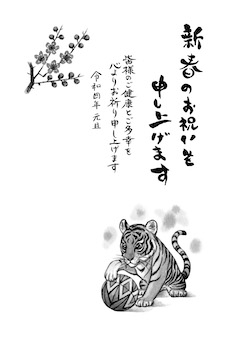 新春のお祝いを
申し上げます
皆様のご健康とご多幸を
心よりお祈り申し上げます
令和四年 元旦